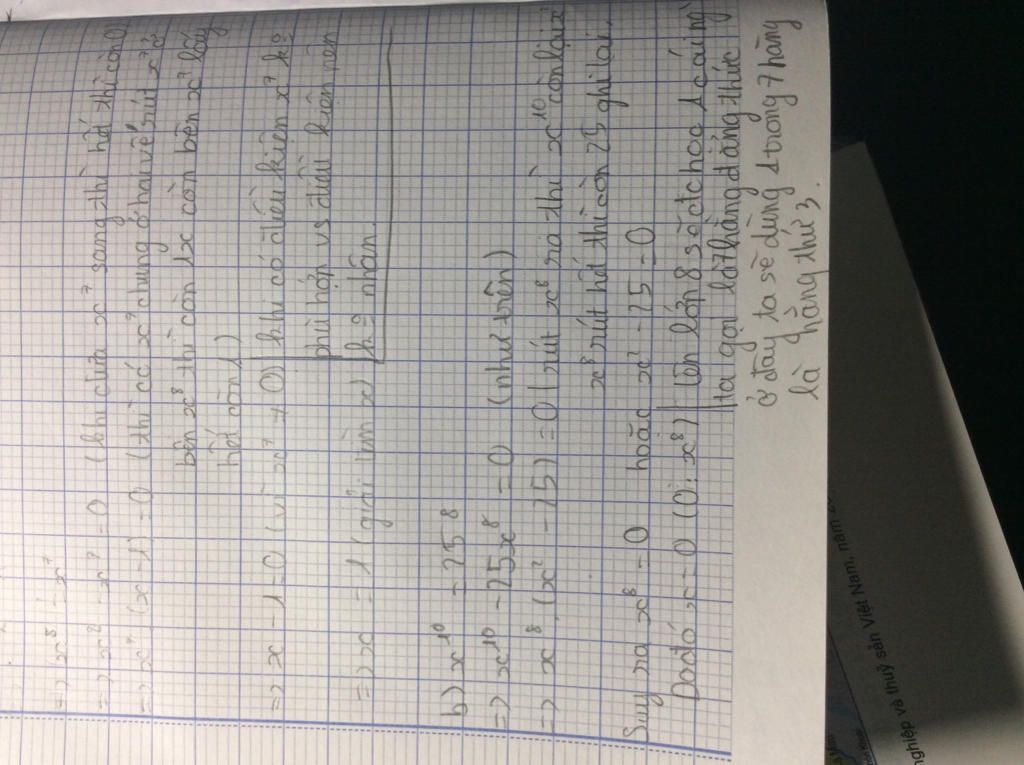 => x⁸ = x⁷
=> x⁸ - x⁷ = 0 (khi chưa x⁷ sang thì hết thì còn 0)
=> x⁷ (x - 1) = 0 (thì có x⁷ chung ở hai vế rút x⁷ ở
bên x⁸ thì còn 1x còn bên x⁷ lấy
hết còn 1)
=> x - 1 = 0 (vì x⁷ ≠ 0) khi có điều kiện x⁷ ko
phù hợp vs điều kiện nên
=> x = 1 (giải tìm x) ko nhận.
b) x¹⁰ = 25⁸
=> x¹⁰ - 25x⁸ = 0 (như trên)
=> x⁸ . (x² - 25) = 0 (rút x⁸ ra thì x¹⁰ còn lại x²
x⁸ rút hết thì còn 25 ghi lại.
Suy ra x⁸ = 0 hoặc x² - 25 = 0
Do đó x = 0 (0 : x⁸) lên lớp 8 sẽ đc học 1 cái mà
ta gọi là 7 hằng đẳng thức
ở đây ta sẽ dùng 1 trong 7 hằng
là hằng thứ 3.
nghiệp và thuỷ sản Việt Nam, năm